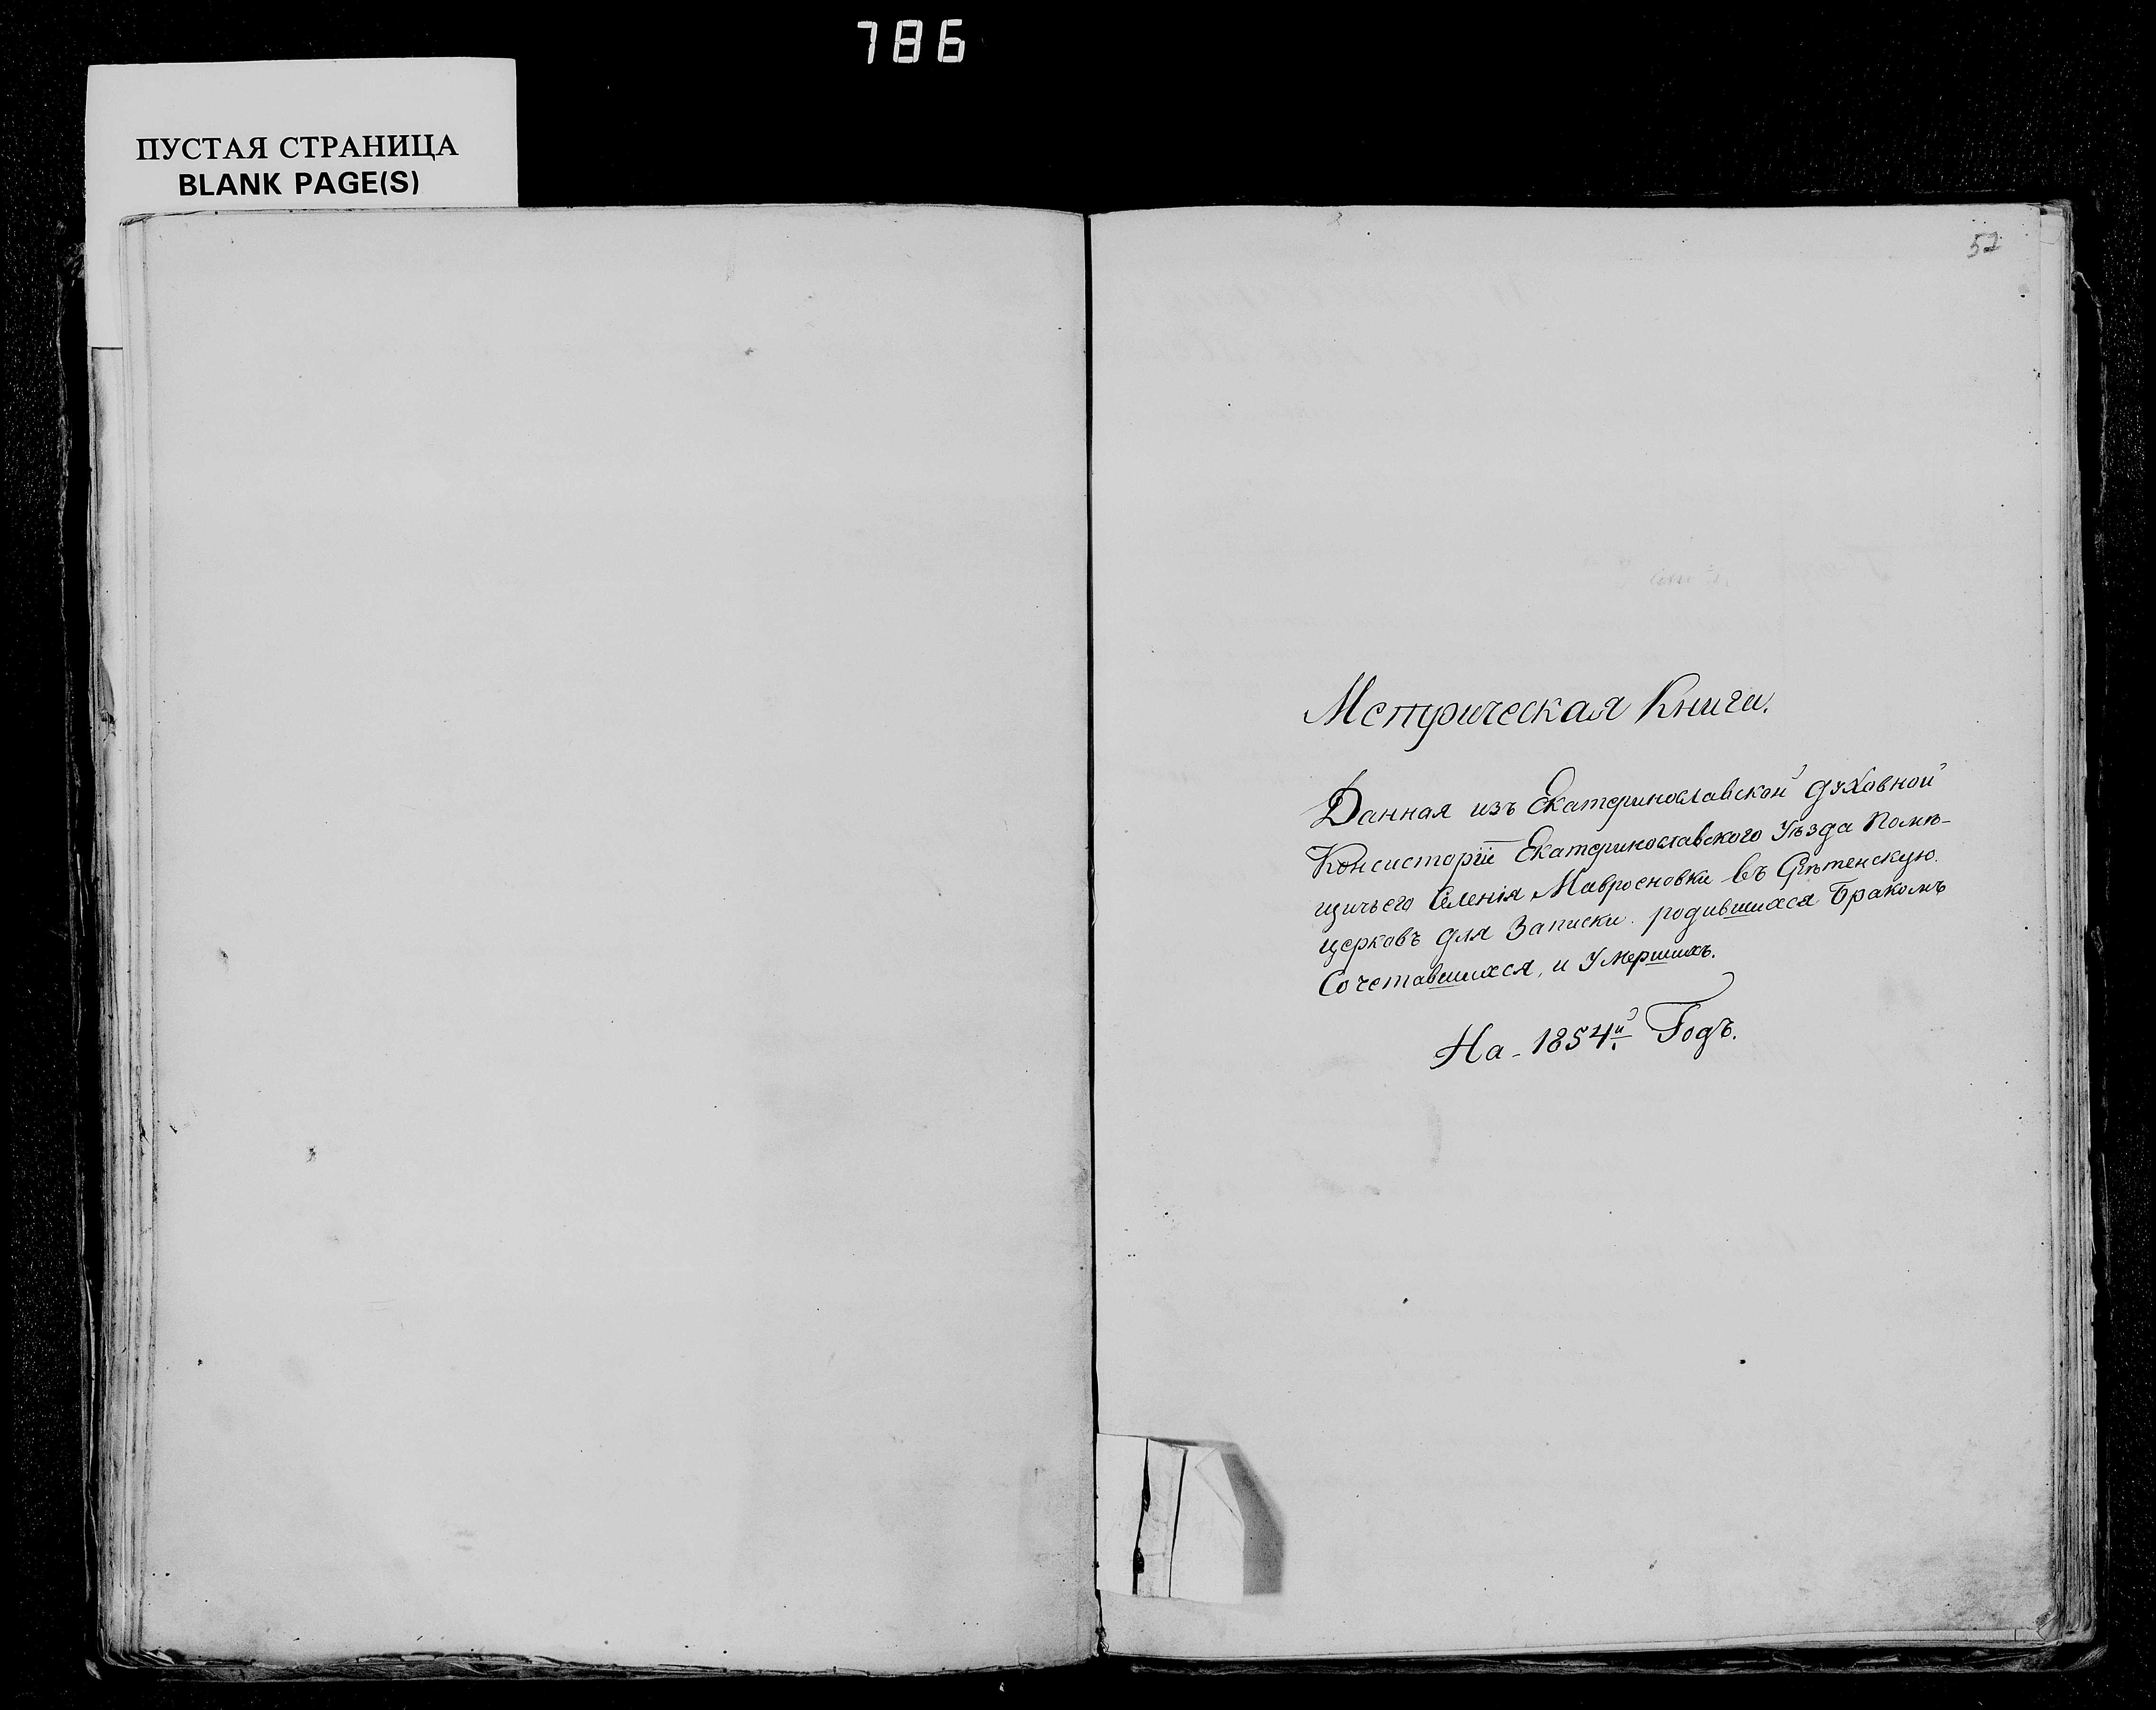 786
ПУСТАЯ СТРАНИЦА
BLANK PAGE(S)
52
Метрическая Книга.
Данная изъ Екатеринославской духовной
Консисторіи Екатеринославского Уѣзда Помѣ-
щичьего Селенія Мавросновки въ Срѣтенскую
церковъ для Записки родившихся Бракомъ
Сочетавшихся, и Умершихъ.
На 1854й Годъ.